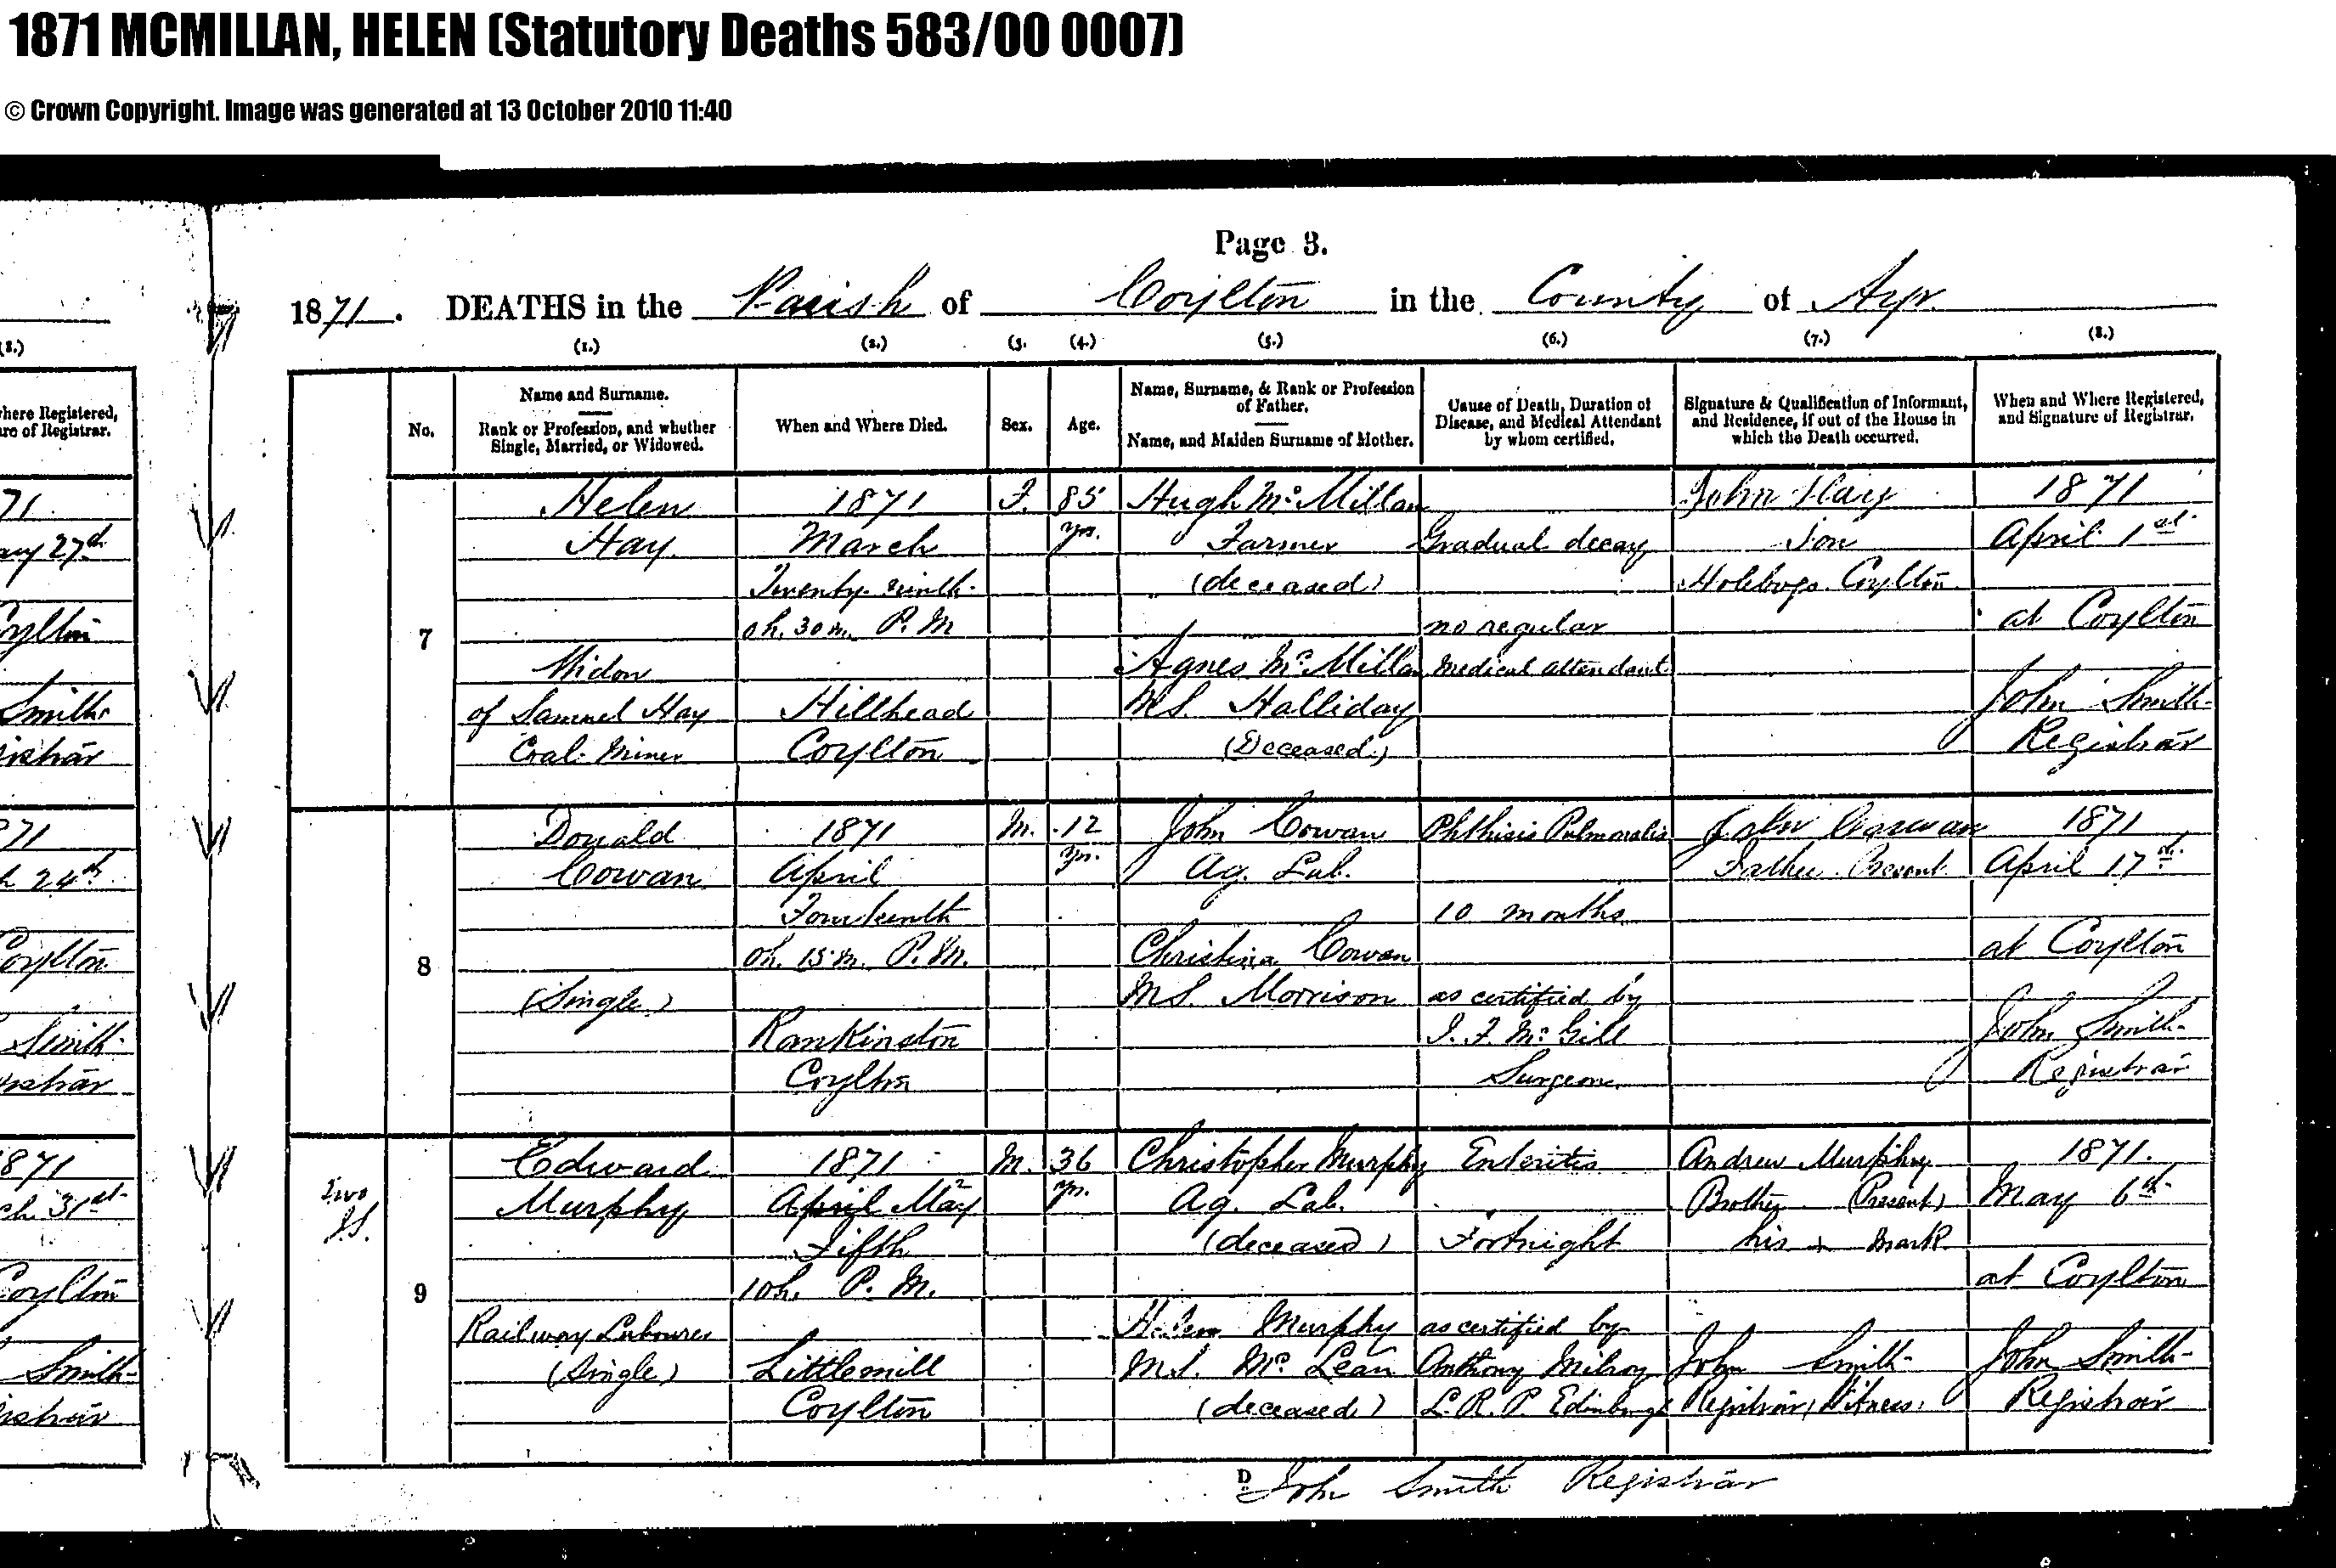 1871 MCMILLAN, HELEN (Statutory Deaths 583/00 0007)
© Crown Copyright. Image was generated at 13 October 2010 11:40
Page 3.
1871. DEATHS in the Parish of Coylton in the County of Ayr
(8.)
(1.) (2.) (3. (4.) (5.) (6.) (7.) (8.)
here Registered,
re of Registrar.
No.
Name and Surname.
Rank or Profession, and whether
Single, Married, or Widowed.
When and Where Died.
Sex.
Age.
Name, Surname, & Rank or Profession
of Father.
Name, and Maiden Surname of Mother.
Cause of Death, Duration of
Disease, and Medical Attendant
by whom certified.
Signature & Qualification of Informant,
and Residence, if out of the House in
which the Death occurred.
When and Where Registered,
and Signature of Registrar.
71
ary 27th
oylton
Smith
istrar
7
Helen
Hay
Widow
of Samuel Hay
Coal Miner
1871
March
Twenty ninth
0h. 30m. P.M
Hillhead
Coylton
F.
85
yrs.
Hugh McMillan
Farmer
(deceased)
Agnes McMillan
M.S. Halliday
(Deceased)
Gradual decay
no regular
medical attendant
John Hay
Son
Holebogs Coylton
1871
April 1st
at Coylton
John Smith
Registrar
871
h 24th
Coylton
Smith
istrar
8
Donald
Cowan
(Single)
1871
April
Fourteenth
0h. 15m. P.M.
Rankinston
Coylton
M.
12
yrs.
John Cowan
Ag. Lab.
Christina Cowan
M.S. Morrison
Phthisis Pulmonalis
10 months
as certified by
J. F. McGill
Surgeon
John Cowan
Father Present
1871
April 17th
at Coylton
John Smith
Registrar
1871
ch 31st
Coylton
Smith
istrar
Two
J.S.
9
Edward
Murphy
Railway Labourer
(Single)
1871
April May
Fifth
10h. P.M.
Littlemill
Coylton
M.
36
yrs.
Christopher Murphy
Ag. Lab.
(deceased)
Helen Murphy
M.S. McLean
(deceased)
Enteritis
Fortnight
as certified by
Anthony Milroy
L.R.P. Edinburgh
Andrew Murphy
Brother (Present)
his x mark
John Smith
Registrar, Witness.
1871.
May 6th
at Coylton
John Smith
Registrar
D
John Smith Registrar